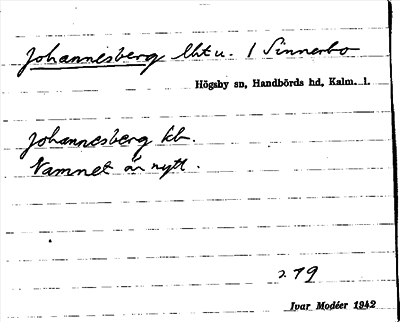 Johannesberg lht u. / Sinnerbo
Högsby sn, Handbörds hd, Kalm. l.
Johannesberg kb.
Namnet är nytt.
279
Ivar Modéer 1942